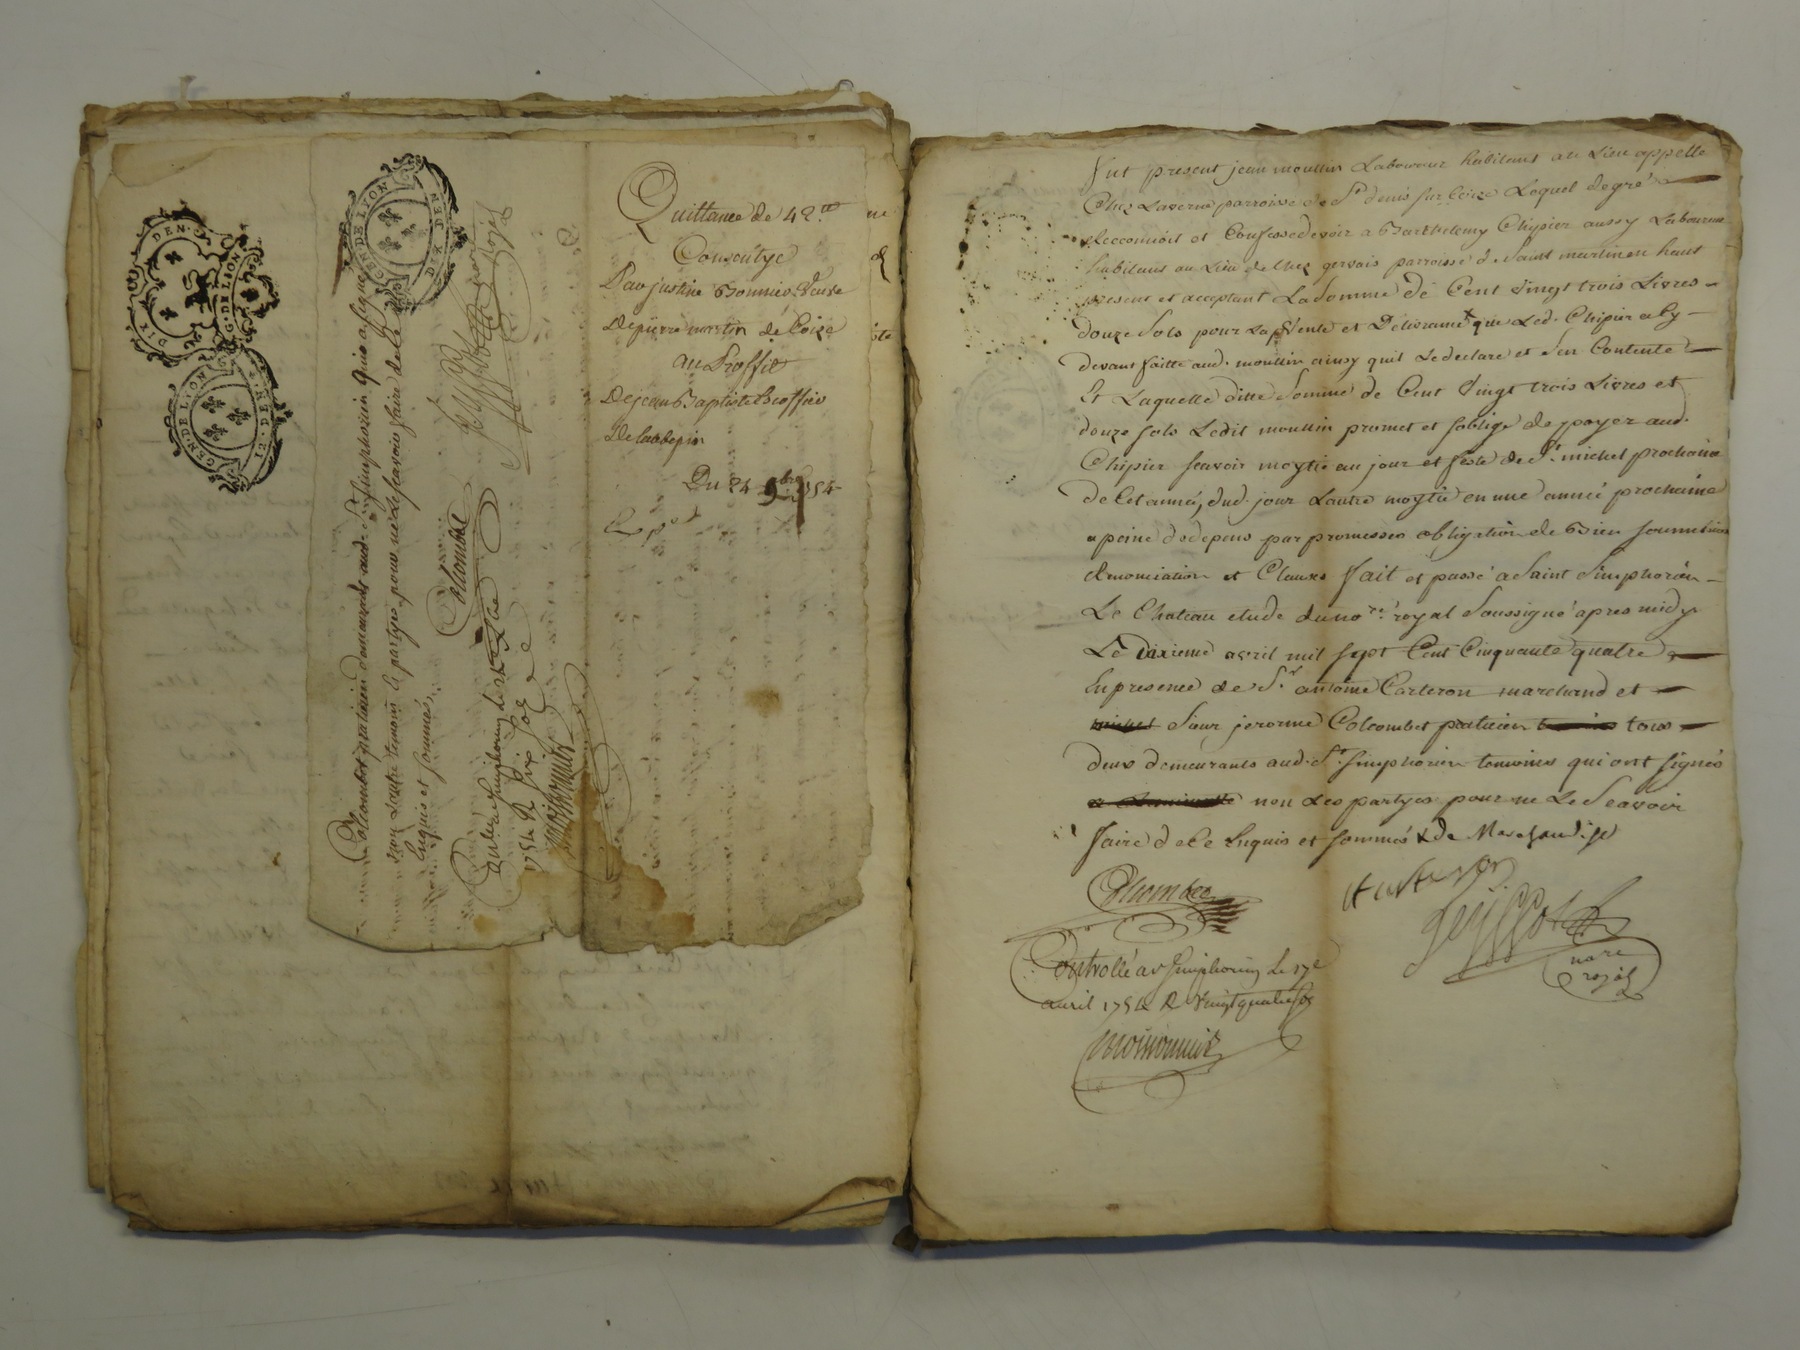 DIX DEN.
G. DE LYON
GEN. DE LYON
GEN. DE LYON
DIX DEN
Colcombet praticien demeurants aud. St. simphorien qui a signé
non Lautre temoin ny partyes pour ne Le scavoir faire de ce
Enquis et sommés
Colcombet
no.re royal
1754 R six sols
Quittance de 48.tt
Consentye
Par justine Bonnier veuve
De pierre martin de Coize
au Proffit
De jean Baptiste
Du 24 9bre 1754
Exp.ed
Fut present jean moullin Laboureur habitant au Lieu appellé
Chez Laverne parroisse de St. denis sur Coize Lequel de gré
Recconnoit et Confesse devoir a Barthelemy Chipier aussy Laboureur
habitant au Lieu de Chez gervais parroisse de Saint martin en haut
present et acceptant La Somme de Cent vingt trois Livres
douze Sols pour La Vente et Delivrance + que Led. Chipier a Cy
devant faitte aud. moullin ainsy quil Le declare et sen Contente
Et Laquelle ditte Somme de Cent vingt trois Livres et
douze sols Ledit moullin promet et soblige de payer aud.
Chipier scavoir moytié au jour et feste de St. michel prochaine
de Cet année, dud. jour Lautre moytié en une année prochaine
a peine de depens par promesses obligation de Bien soumissions
Renonciation et Clauses fait et passé a Saint Simphorien
Le Chateau etude du no.re royal Soussigné apres midy
Le dixieme avril mil sept Cent Cinquante quatre
En presence de S.r antoine Carteron marchand et
Sieur jerosme Colcombet praticien tous
deux demeurants aud. St. simphorien temoins qui ont signés
non Les partyes pour ne Le Scavoir
faire de Ce Enquis et sommés + de Marchandise
Colcombet
Carteron
no.re royal
Controllé a St Simphorien Le 17e
avril 1754 R vingt quatre sols